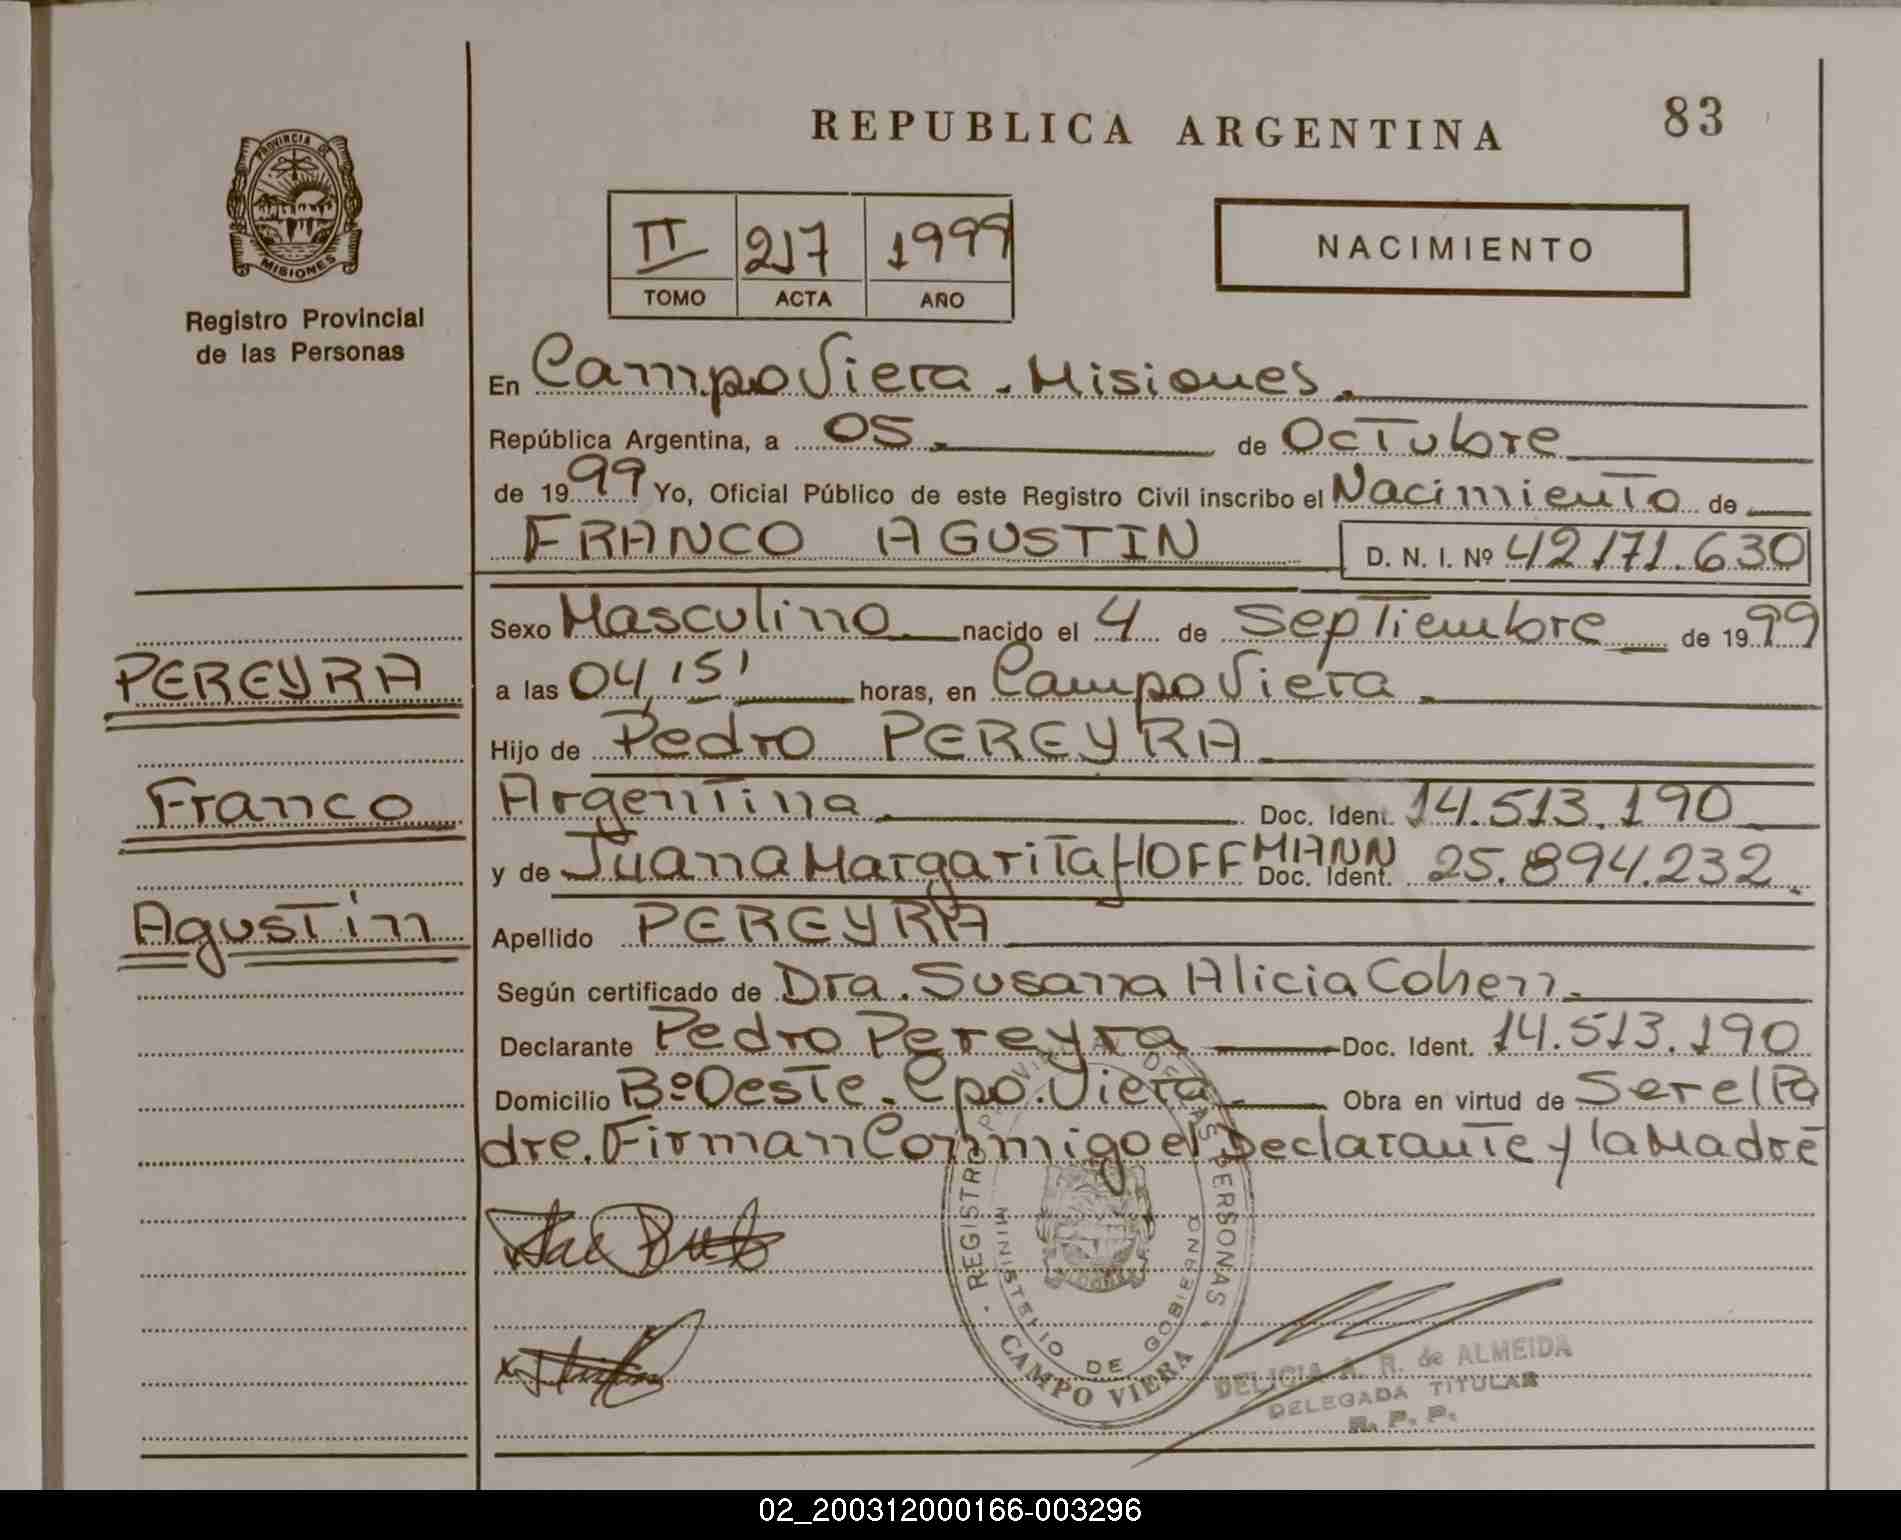 REPUBLICA ARGENTINA
83
PROVINCIA DE
MISIONES
Registro Provincial
de las Personas
II 217 1999
TOMO ACTA AÑO
NACIMIENTO
En Campo Viera. Misiones.
República Argentina, a 05. de Octubre
de 1999 Yo, Oficial Público de este Registro Civil inscribo el Nacimiento de
FRANCO AGUSTIN D. N. I. Nº 42171.630
Sexo Masculino nacido el 4 de Septiembre de 1999
PEREYRA
a las 04,15' horas, en Campo Viera.
Hijo de Pedro PEREYRA
Franco
Argentina Doc. Ident. 14.513.190
y de Juana Margarita HOFFMANN Doc. Ident. 25.894.232.
Agustín
Apellido PEREYRA
Según certificado de Dra. Susana Alicia Cohen.
Declarante Pedro Pereyra Doc. Ident. 14.513.190
Domicilio Bº Oeste. Cpo. Viera. Obra en virtud de Ser el Pa
dre. Firman Conmigo el Declarante y la Madre
REGISTRO PROVINCIAL DE LAS PERSONAS
MINISTERIO DE GOBIERNO
CAMPO VIERA
DELICIA A. R. de ALMEIDA
DELEGADA TITULAR
R. P. P.
02_200312000166-003296